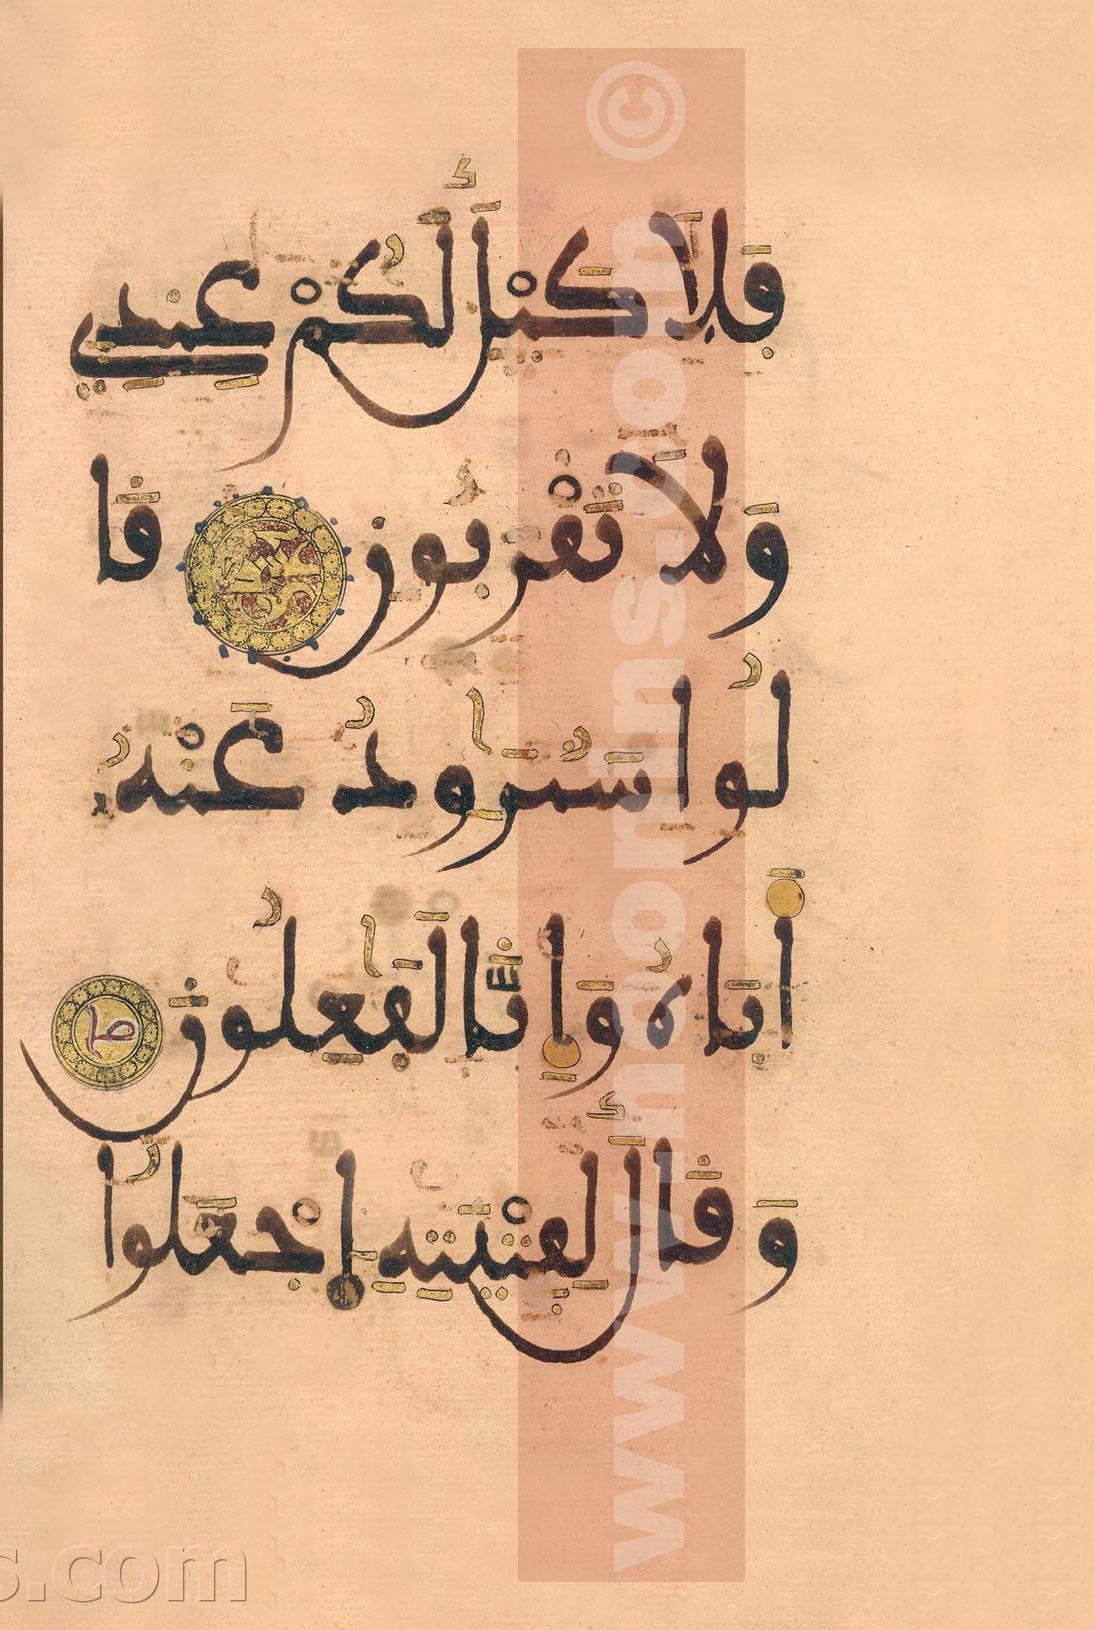 فَلَا كَيْلَ لَكُمْ عِندِي
وَلَا تَقْرَبُونِ قَا
لُوا سَنُرَٰوِدُ عَنْهُ
أَبَاهُ وَإِنَّا لَفَٰعِلُونَ
وَقَالَ لِفِتْيَتِهِ اِجْعَلُوا
©
s.com